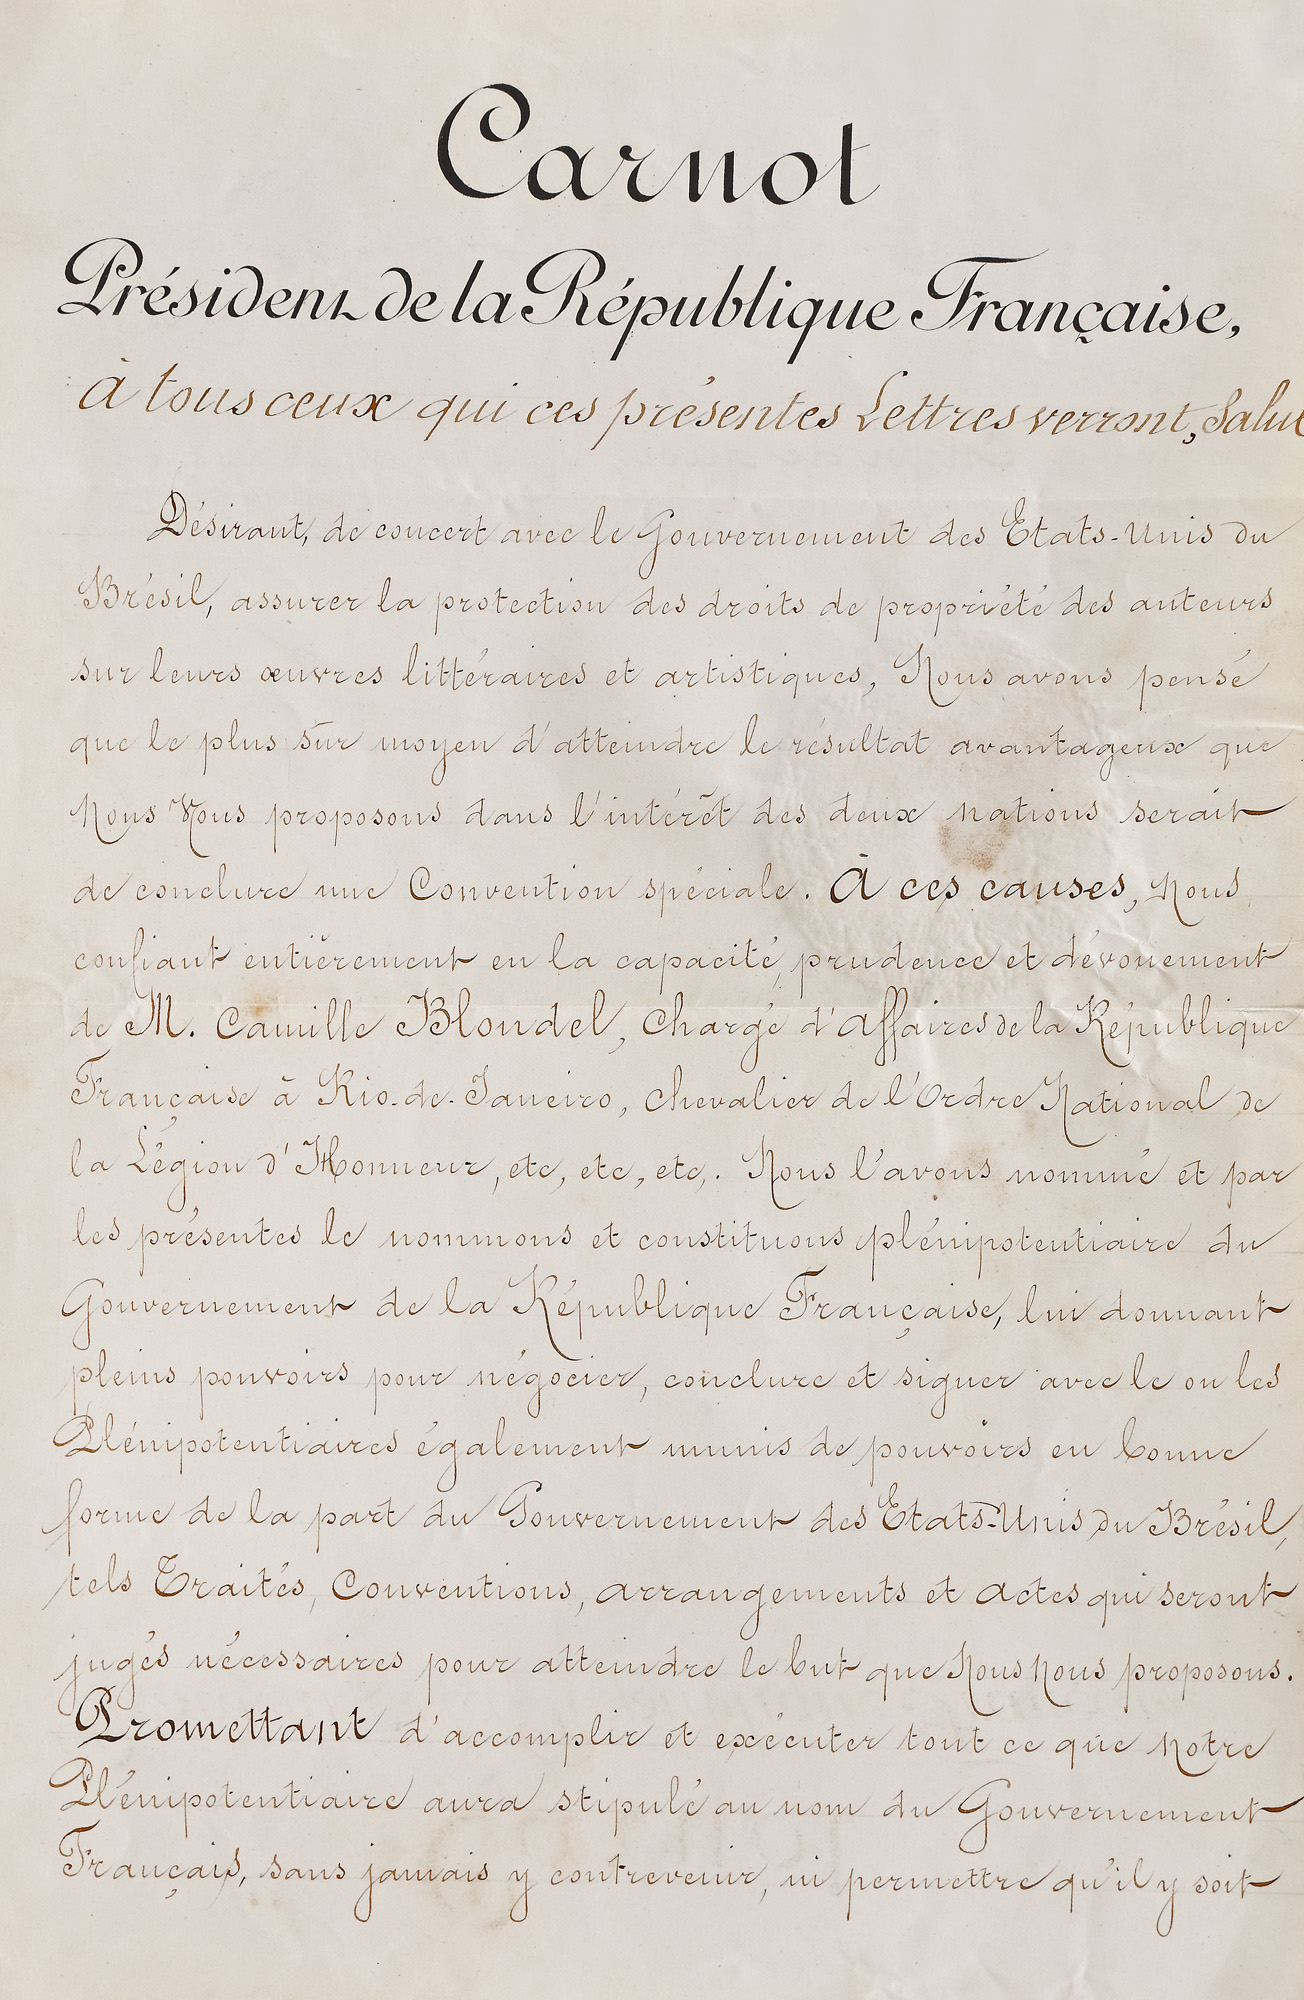 Carnot
Président de la République Française,
à tous ceux qui ces présentes Lettres verront, Salut
Désirant, de concert avec le Gouvernement des Etats-Unis du
Brésil, assurer la protection des droits de propriété des auteurs
sur leurs œuvres littéraires et artistiques, Nous avons pensé
que le plus sûr moyen d'atteindre le résultat avantageux que
Nous Nous proposons dans l'intérêt des deux nations serait
de conclure une Convention spéciale. À ces causes, Nous
confiant entièrement en la capacité, prudence et dévouement
de M. Camille Blondel, Chargé d'Affaires de la République
Française à Rio-de-Janeiro, Chevalier de l'Ordre National de
la Légion d'Honneur, etc, etc, etc,. Nous l'avons nommé et par
les présentes le nommons et constituons plénipotentiaire du
Gouvernement de la République Française, lui donnant
pleins pouvoirs pour négocier, conclure et signer avec le ou les
Plénipotentiaires également munis de pouvoirs en bonne
forme de la part du Gouvernement des Etats-Unis du Brésil,
tels Traités, Conventions, arrangements et actes qui seront
jugés nécessaires pour atteindre le but que Nous Nous proposons.
Promettant d'accomplir et exécuter tout ce que Notre
Plénipotentiaire aura stipulé au nom du Gouvernement
Français, sans jamais y contrevenir, ni permettre qu'il y soit